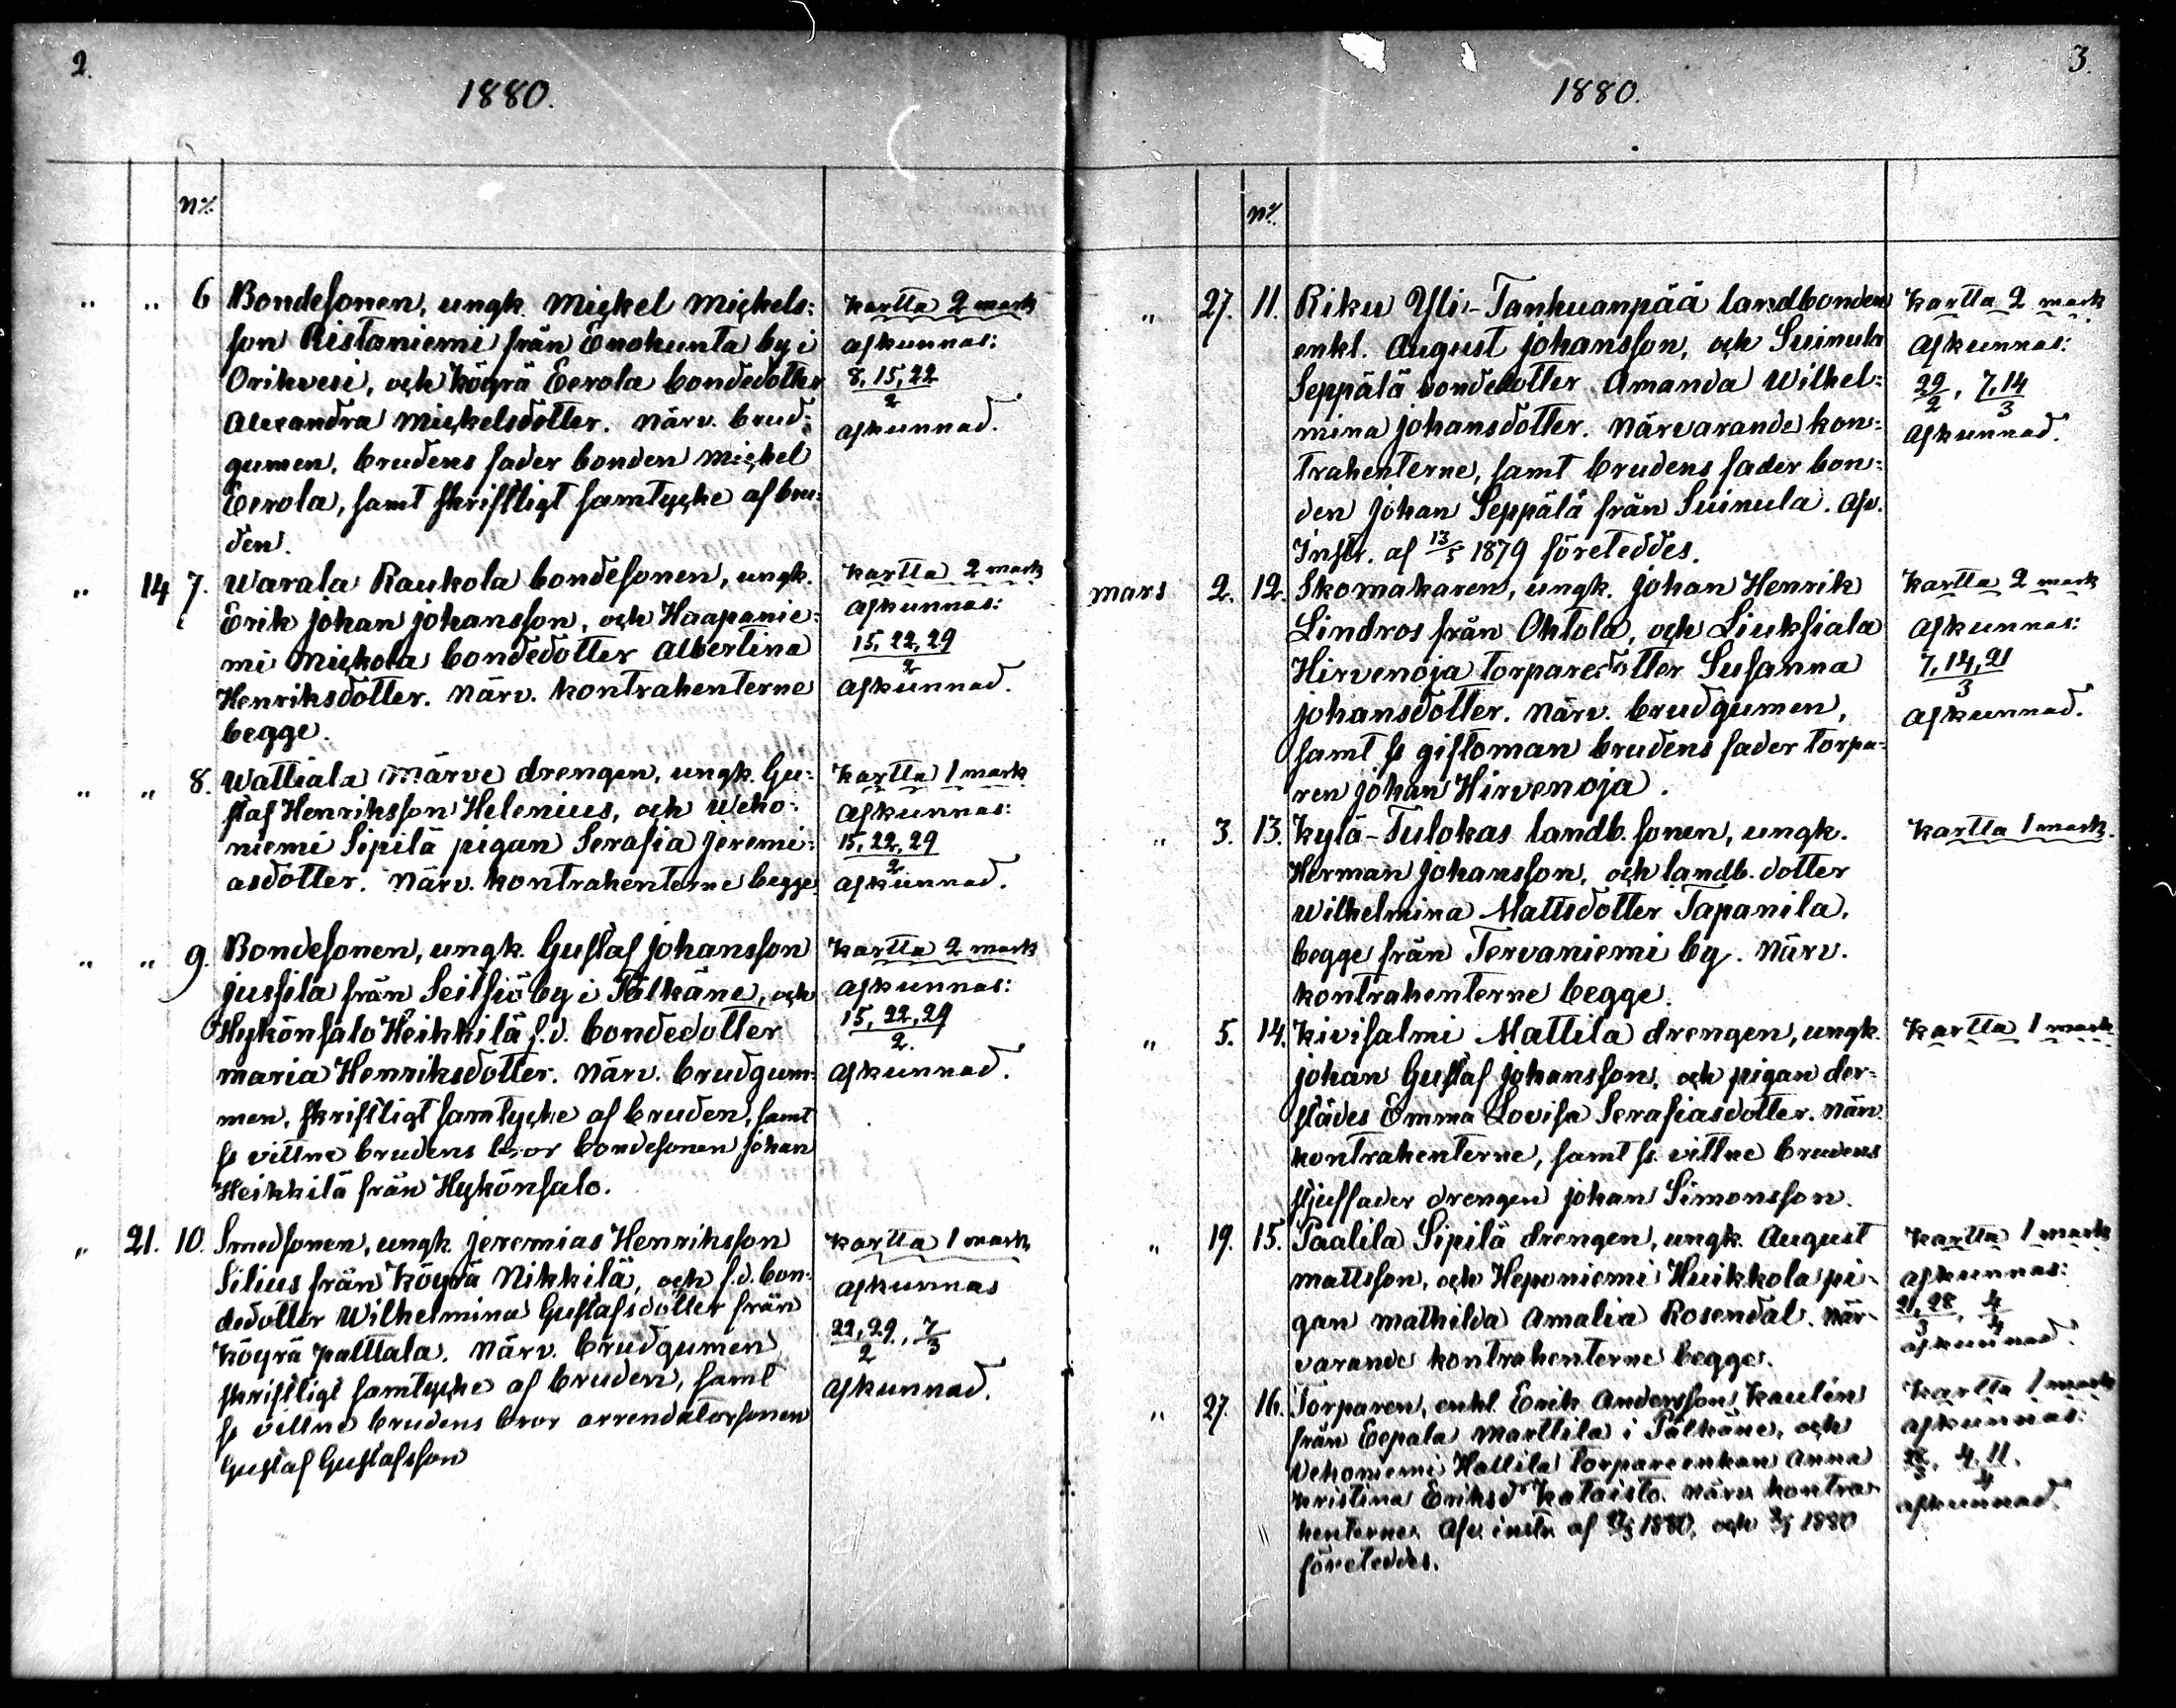 2.
1880.
No.
" " 6 Bondesonen, ungk. Mickel Mickels-
son Ristaniemi från Enokunta by i
Orihvesi, och Köyrä Eerola bondedotter
Alexandra Mickelsdotter. Närv. brud-
gumen, brudens fader bonden Mickel
Eerola, samt skriftligt samtycke af bru-
den.
Kartta 2 mark
afkunnas:
8, 15, 22
2
afkunnad.
" 14 7. Warala Raukola bondesonen, ungk.
Erik Johan Johansson, och Haapanie-
mi Mickola bondedotter Albertina
Henriksdotter. Närv. kontrahenterne
begge.
Kartta 2 mark
afkunnas:
15, 22, 29
2
afkunnad.
" " 8. Wattiala Märve drengen, ungk. Gu-
staf Henriksson Helenius, och Weho-
niemi Sipilä pigan Serafia Jeremi-
asdotter. Närv. kontrahenterne begge.
Kartta 1 mark
afkunnas:
15, 22, 29
2
afkunnad.
" " 9. Bondesonen, ungk. Gustaf Johansson
Jussila från Seitsiö by i Pälkäne, och
Hykönsalo Heikkilä f.d. bondedotter
Maria Henriksdotter. Närv. brudgum-
men, skriftligt samtycke af bruden, samt
ss vittne brudens bror bondesonen Johan
Heikkilä från Hykönsalo.
Kartta 2 mark
afkunnas:
15, 22, 29
2.
afkunnad.
" 21. 10. Smedsonen, ungk. Jeremias Henriksson
Silius från Köyrä Nikkilä, och f.d. bon-
dedotter Wilhelmina Gustafsdotter från
Köyrä Pattala. Närv. brudgumen
skriftligt samtycke af bruden, samt
ss vittne brudens bror arrendatorsonen
Gustaf Gustafsson
Kartta 1 mark
afkunnas
22, 29, 7
2 3
afkunnad.
3.
1880.
No.
" 27. 11. Riku Yli-Tanhuanpää landbonden
enkl. August Johansson, och Suinula
Seppälä bondedotter Amanda Wilhel-
mina Johansdotter. Närvarande kon-
trahenterne, samt brudens fader bon-
den Johan Seppälä från Suinula. Afv.
Instr. af 13/5 1879 företeddes.
Kartta 2 mark
afkunnas:
22, 7, 14
2 3
afkunnad.
Mars 2. 12. Skomakaren, ungk. Johan Henrik
Lindros från Ohtola, och Liuksiala
Hirvenoja torparedotter Susanna
Johansdotter. Närv. brudgumen,
samt ss giftoman brudens fader torpa-
ren Johan Hirvenoja.
Kartta 2 mark
afkunnas:
7, 14, 21
3
afkunnad.
" 3. 13. Kylä-Tulokas landb. sonen, ungk.
Herman Johansson, och landb. dotter
Wilhelmina Mattsdotter Tapanila,
begge från Tervaniemi by. Närv.
kontrahenterne begge.
Kartta 1 mark.
" 5. 14. Kivisalmi Mattila drengen, ungk.
Johan Gustaf Johansson, och pigan der-
städes Emma Lovisa Serafiasdotter. Närv.
kontrahenterne, samt ss. vittne brudens
stjuffader drengen Johan Simonsson.
Kartta 1 mark
" 19. 15. Paalila Sipilä drengen, ungk. August
Mattsson, och Heponiemi Huikkola pi-
gan Mathilda Amalia Rosendal. När-
varande kontrahenterne begge.
Kartta 1 mark
afkunnas:
21, 28, 4
3 4
afkunnad.
" 27. 16. Torparen, enkl. Erik Andersson Kaulén
från Eepala Marttila i Pälkäne, och
Wehoniemi Hattila torpareenkan Anna
Kristina Eriksdr Kataisto. Närv. kontra-
henterne. Afv. instr. af 1880, och 1880
företeddes.
Kartta 1 mark
afkunnas:
28, 4, 11.
3 4
afkunnad.